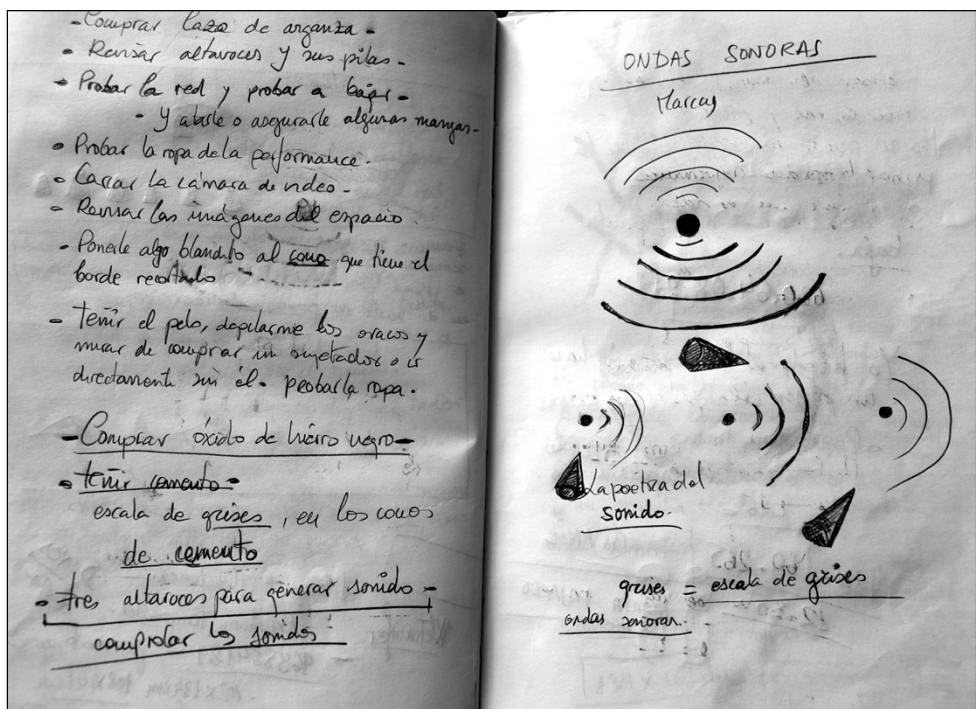 - Comprar lazo de arganza -
- Revisar altavoces y sus pilas -
- Probar la red y probar a bajar -
- Y atarle o asegurarle algunas mangas -
- Probar la ropa de la performance.
- Cargar la cámara de video -
- Revisar las imágenes del espacio.
- Ponerle algo blandito al cono que tiene el
borde recortado
- teñir el pelo, depilarme los y
mirar de comprar un sujetador o ir
directamente sin él. probar la ropa.
- Comprar óxido de hierro negro -
- teñir cemento -
escala de grises, en los conos
de cemento
- tres altavoces para generar sonido -
comprobar los sonidos
ONDAS SONORAS
Marcas
La poetica del
sonido.
grises = escala de grises
ondas sonoras.